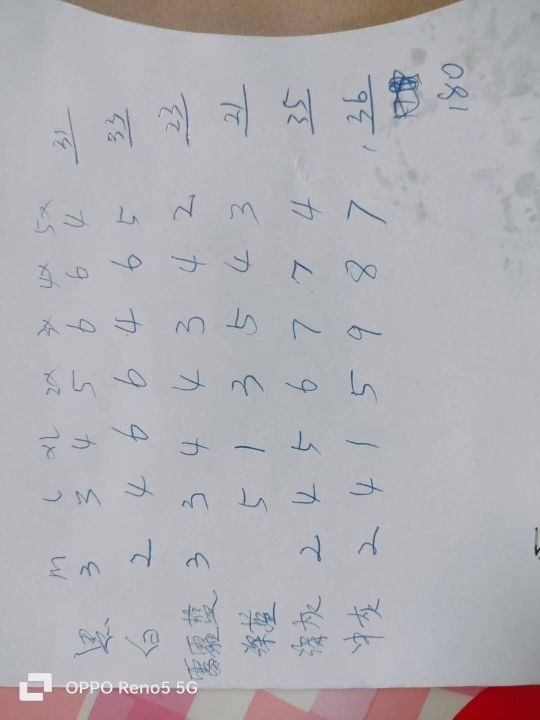 M L XL 2X 3X 4X 5X
黑 3 3 4 5 6 6 4 31
白 2 4 6 6 4 6 5 33
3 3 4 4 3 4 2 23
深蓝 5 1 3 5 4 3 21
深灰 2 4 5 6 7 7 4 35
中灰 2 4 1 5 9 8 7 36
180
OPPO Reno5 5G